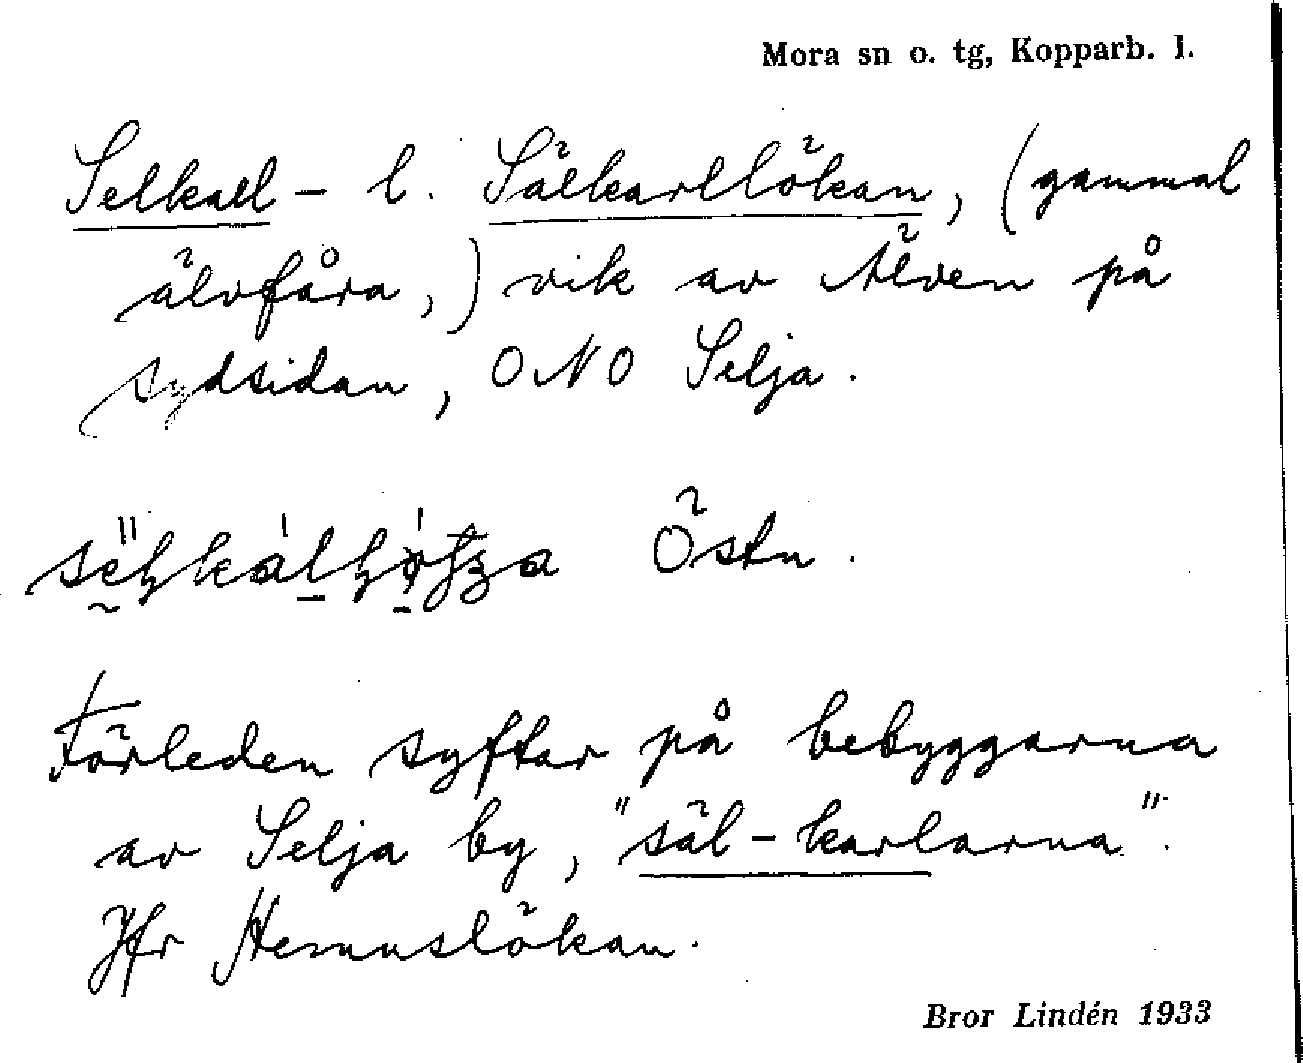 Mora sn o. tg, Kopparb. l.
Selkall- l. Sälkarllökan, (gammal
älvfåra,) vik av Älven på
sydsidan, ONO Selja.
Östn.
Förleden syftar på bebyggarna
av Selja by, "säl-karlarna".
Jfr Hemuslökan.
Bror Lindén 1933